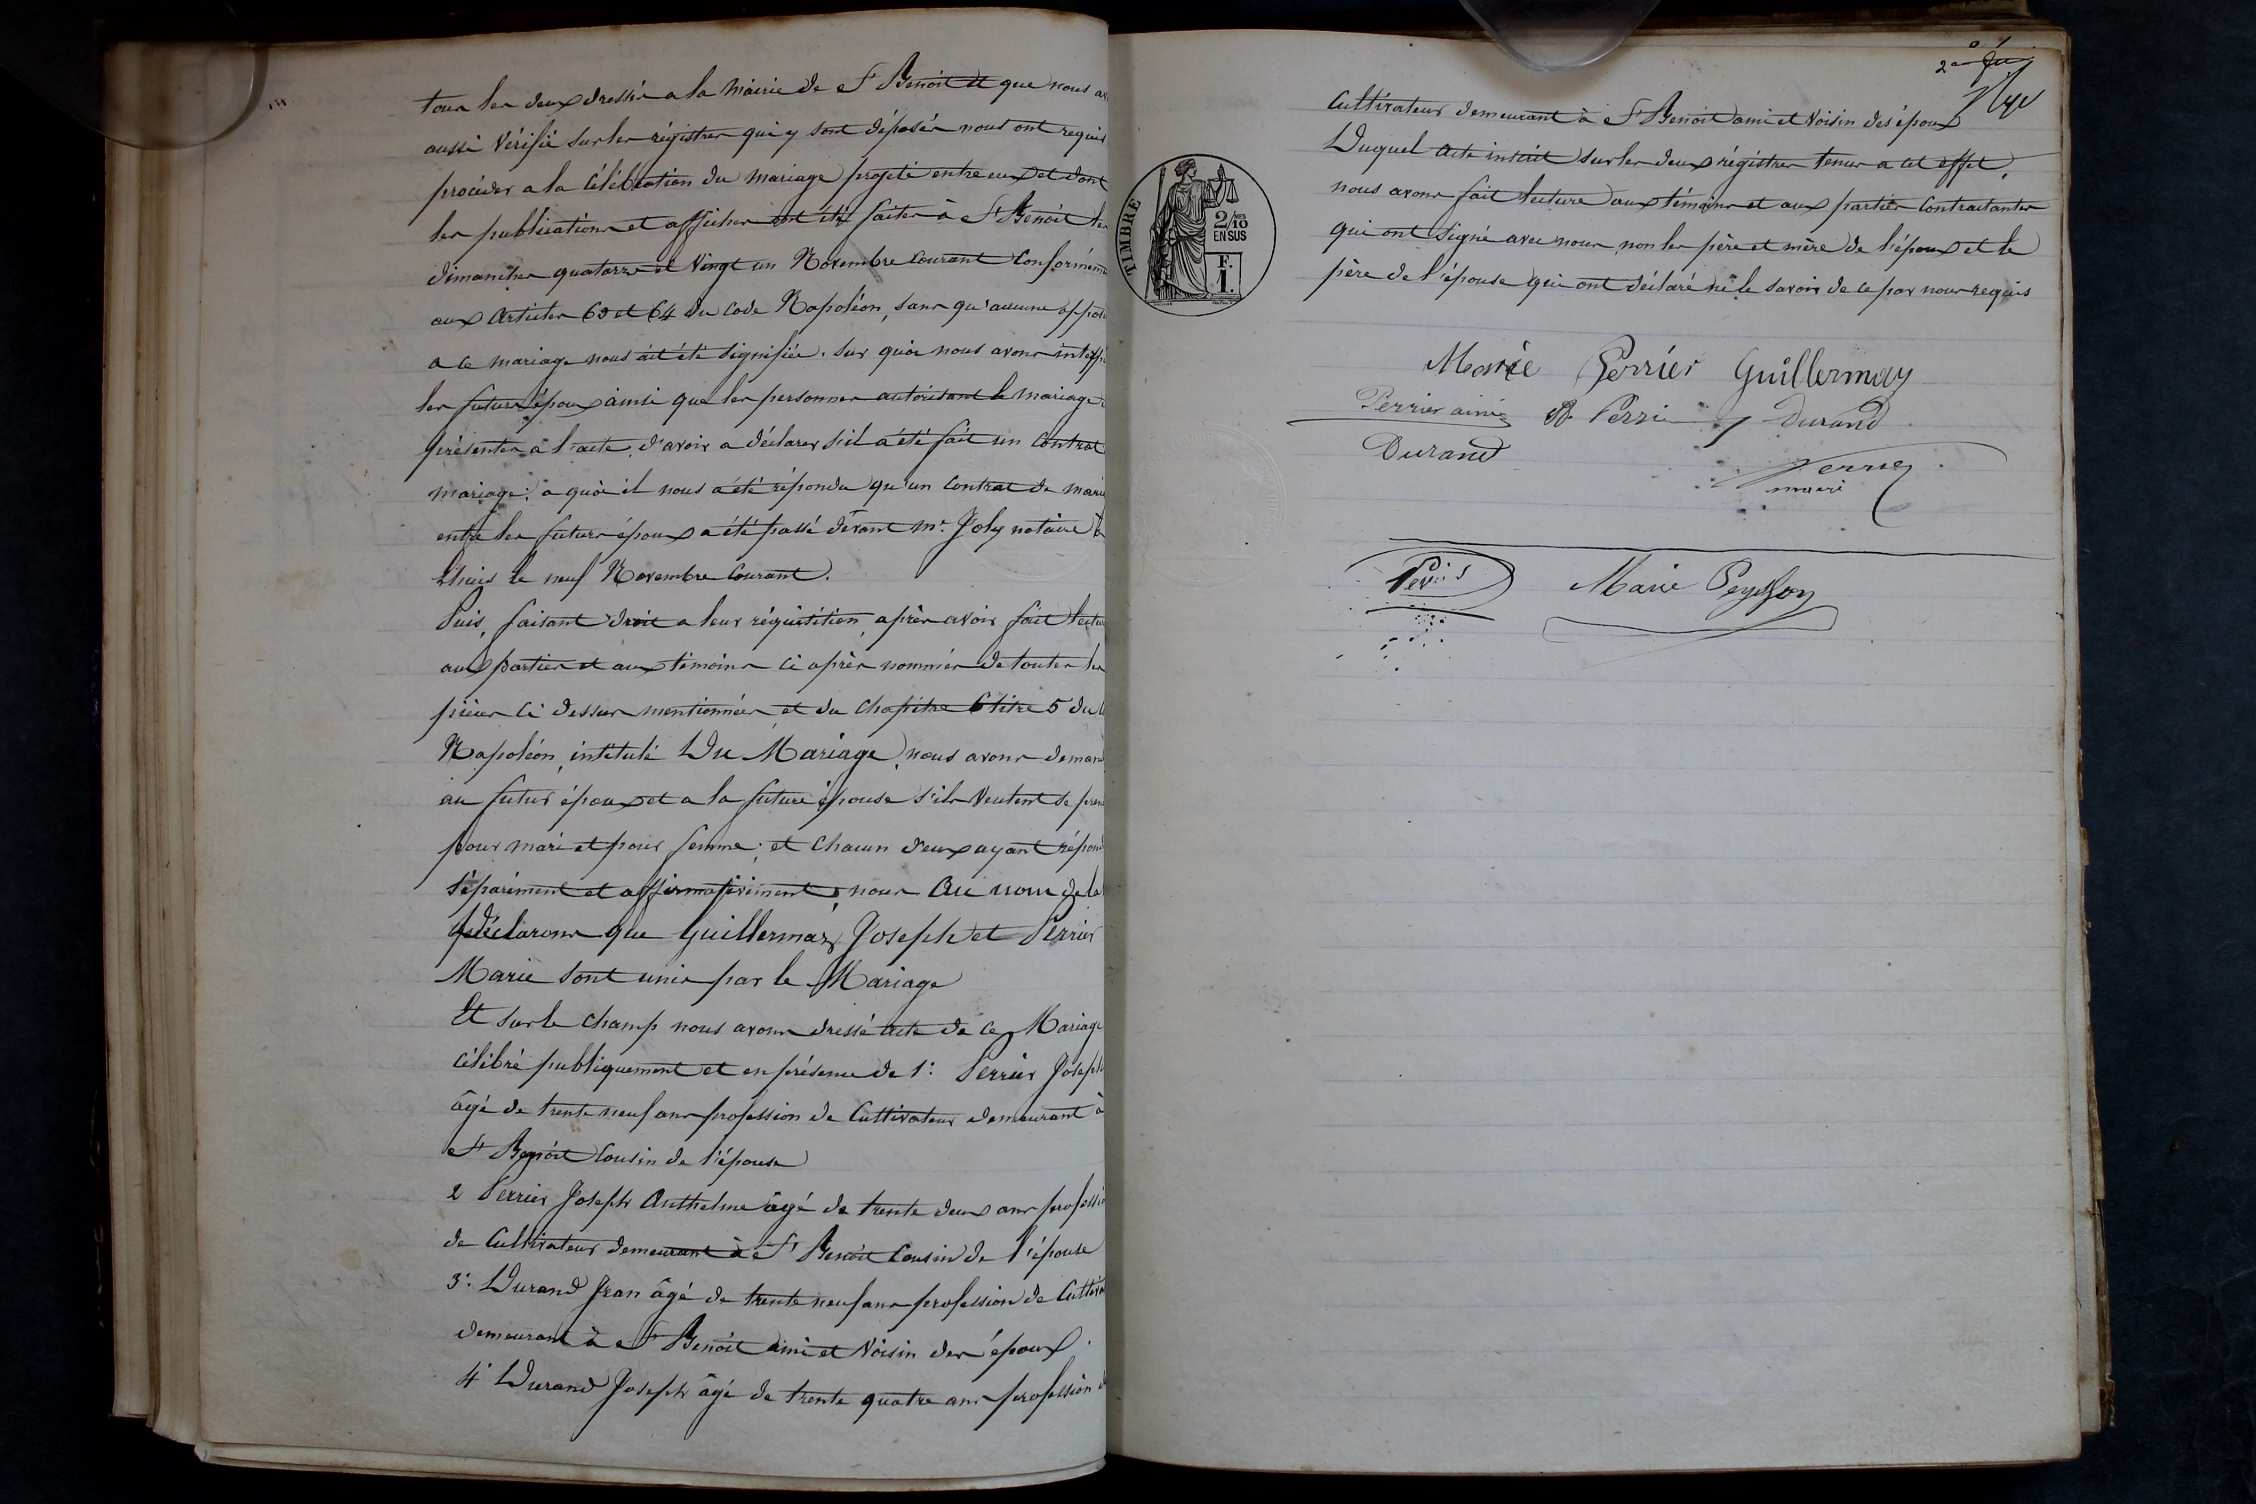 tous les deux dressés a la Mairie de St Benoit et que nous av
aussi Vérifié sur les régistres qui y sont déposés nous ont requis
procéder a la Célébration du mariage projeté entre eux et dont
les publications et affiches ont été faites à St Benoit les
dimanches quatorze et Vingt un Novembre Courant Conforméme
aux Articles 63 et 64 du Code Napoléon, sans qu'aucune oppos
a ce mariage nous ait été signifiée. sur quoi nous avons interpe
les futurs époux ainsi que les personnes autorisant le mariage
présentes à l'acte, d'avoir a déclarer s'il a été fait un Contrat
mariage; a quoi il nous a été répondu qu'un Contrat de mari
entre les futurs époux a été passé devant Mr. Joly notaire à
Lhuis le neuf Novembre Courant.
Puis, faisant droit a leur réquisition, après avoir fait lectu
aux parties et aux témoins ci après nommés de toutes les
pièces ci dessus mentionnées et du Chapitre 6 titre 5 du C
Napoléon, intitulé Du Mariage, nous avons deman
au futur époux et a la future épouse s'ils Veulent se pren
pour mari et pour femme; et Chacun d'eux ayant répond
séparément et affirmativement, nous Au nom de la
déclarons que Guillermaz Joseph et Perrier
Marie sont unis par le Mariage
Et sur le Champ nous avons dressé acte de ce Mariage
Célébré publiquement et en présence de 1° Perrier Joseph
âgé de trente neuf ans profession de Cultivateur demeurant à
St Benoit Cousin de l'épouse
2 Perrier Joseph Anthelme âgé de trente deux ans professio
de Cultivateur demeurant à St Benoit Cousin de l'épouse
3° Durand Jean âgé de trente neuf ans profession de Cultiva
demeurant à St Benoit ami et Voisin des époux.
4° Durand Joseph âgé de trente quatre ans profession d
TIMBRE
2/10 EN SUS
F. 1.
Cultivateur demeurant à St Benoit ami et Voisin des époux
Duquel Acte inscrit sur les deux régistres tenus a cet effet,
nous avons fait lecture aux témoins et aux parties Contractantes
qui ont signé avec nous non les père et mère de l'époux et le
père de l'épouse qui ont déclaré ne le savoir de ce par nous requis
Marie Perrier Guillermaz
Perrier ainé Perrie J Durand
Durand
maire
Marie Peysson